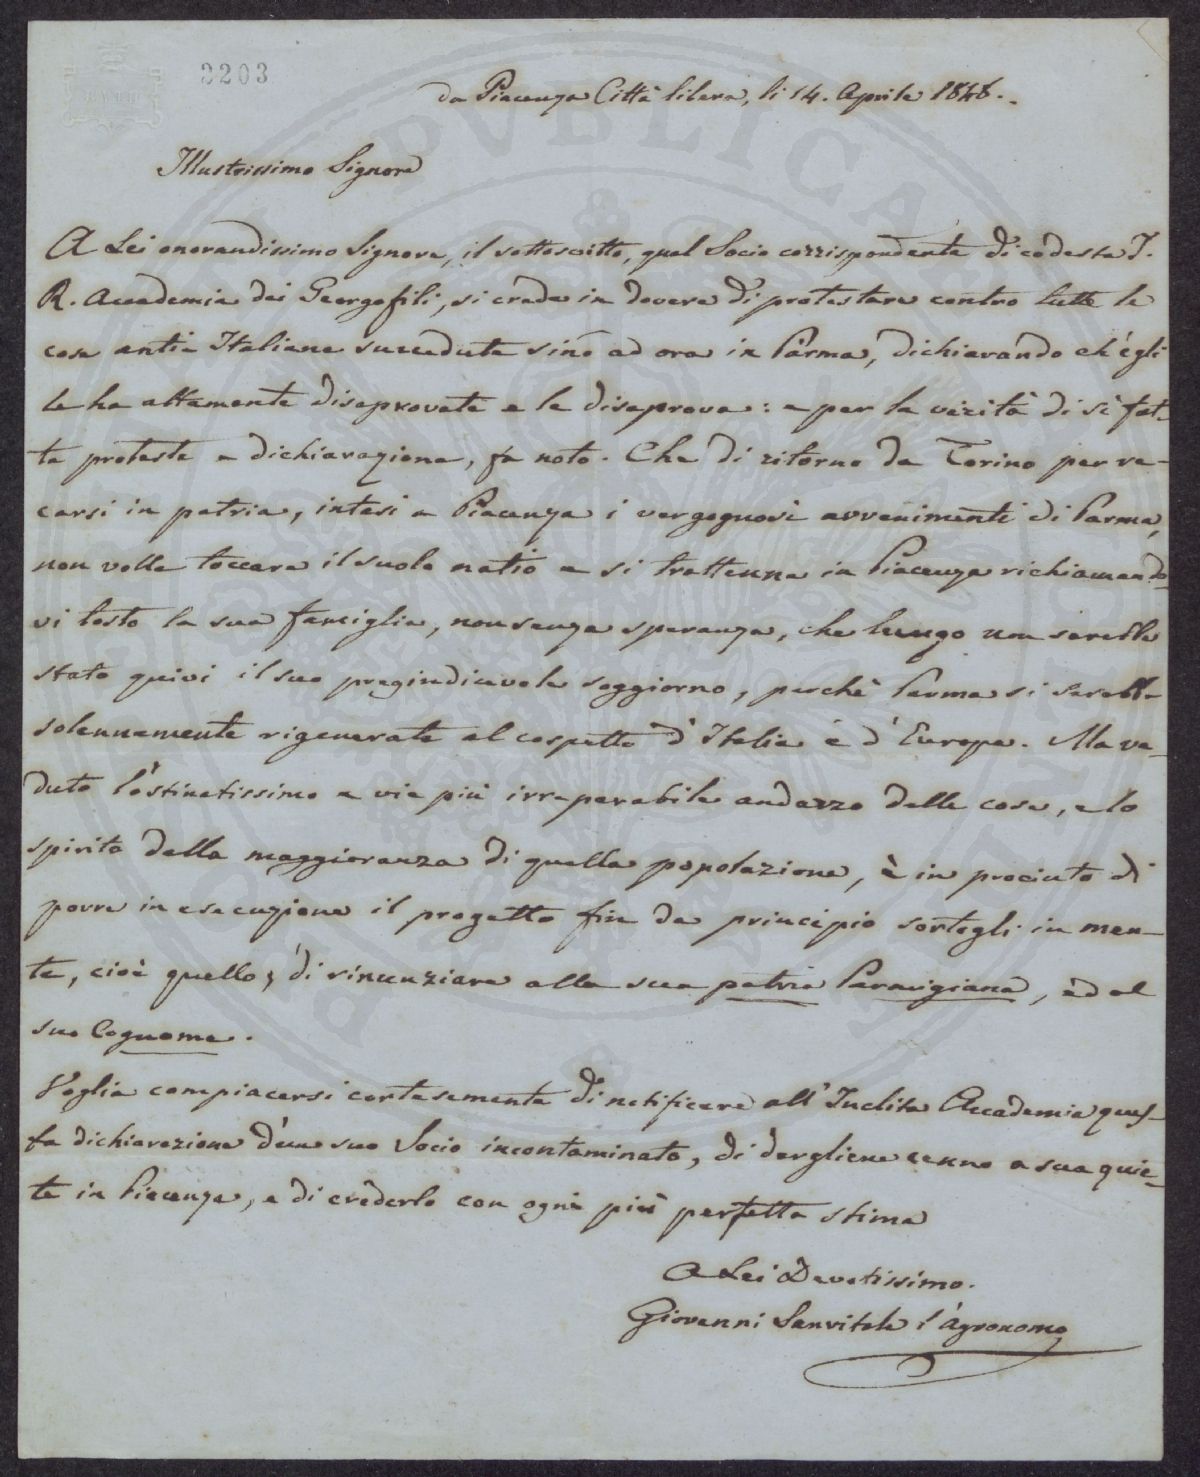 2203
da Piacenza Città libera, li 14. Aprile 1848.
Illustrissimo Signore
A Lei onorandissimo Signore, il sottoscritto, qual Socio corrispondente di codesta I.
R. Accademia dei Georgofili, si crede in dovere di protestare contro tutte le
cose antie Italiane succedute sino ad ora in Parma, dichiarando ch'egli
le ha altamente disaprovate e le disaprova: e per la verità di sì fat-
te proteste e dichiarazione, fa noto. Che di ritorno da Torino per re-
carsi in patria, intesi a Piacenza i vergognosi avvenimenti di Parma,
non volle toccare il suolo natio e si trattenne in Piacenza richiamando-
vi tosto la sua famiglia, non senza speranza, che lungo non sarebbe
stato quivi il suo pregiudicevole soggiorno, perchè Parma si sarebbe
solennemente rigenerata al cospetto d'Italia e d'Europa. Ma ve-
duto l'ostinatissimo e vie più irreparabile andazzo delle cose, e lo
spirito della maggioranza di quella popolazione, è in prociuto di
porre in esecuzione il progetto fin da principio sortogli in men-
te, cioè quello, di rinunziare alla sua patria Parmigiana, ed al
suo Cognome.
Voglia compiacersi cortesemente di notificare all'Inclita Accademia ques-
ta dichiarazione d'un suo Socio incontaminato, di dargliene cenno a sua quie-
te in Piacenza, e di crederlo con ogni più perfetta stima
A Lei Devotissimo.
Giovanni Sanvitale l'Agronomo